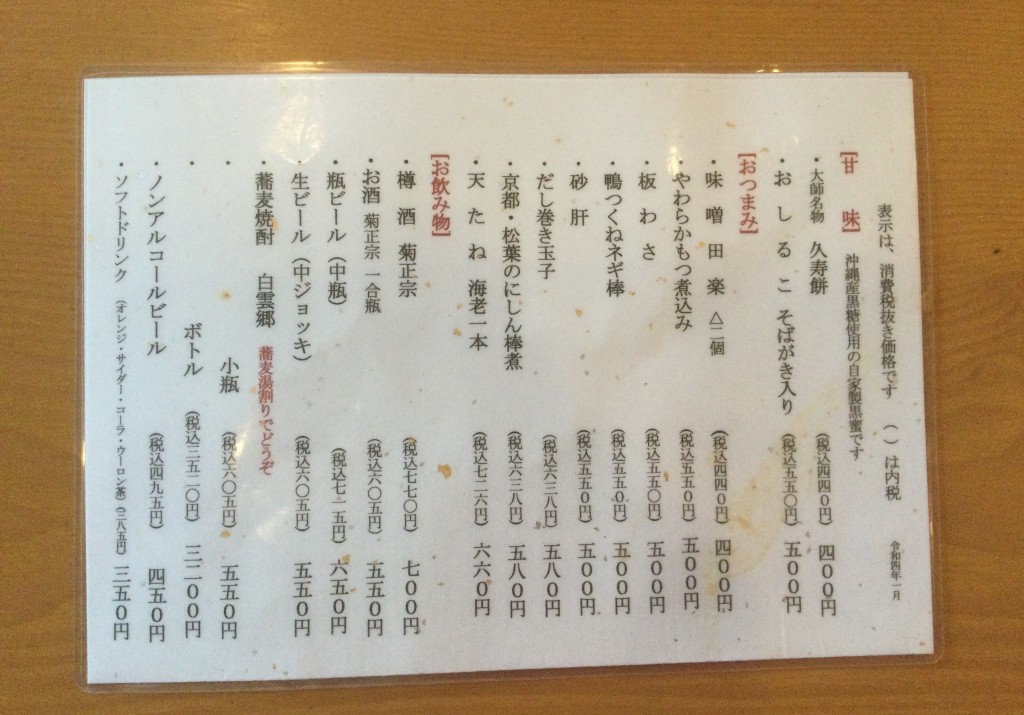 表示は、消費税抜き価格です （ ）は内税 令和四年一月
【甘 味】 沖縄産黒糖使用の自家製黒蜜です
・大師名物 久寿餅 （税込四四〇円） 四〇〇円
・おしるこ そばがき入り （税込五五〇円） 五〇〇円
【おつまみ】
・味噌田楽 △二個 （税込四四〇円） 四〇〇円
・やわらかもつ煮込み （税込五五〇円） 五〇〇円
・板わさ （税込五五〇円） 五〇〇円
・鴨つくねネギ棒 （税込五五〇円） 五〇〇円
・砂肝 （税込五五〇円） 五〇〇円
・だし巻き玉子 （税込六三八円） 五八〇円
・京都・松葉のにしん棒煮 （税込六三八円） 五八〇円
・天たね 海老一本 （税込七二六円） 六六〇円
【お飲み物】
・樽 酒 菊正宗 （税込七七〇円） 七〇〇円
・お酒 菊正宗 一合瓶 （税込六〇五円） 五五〇円
・瓶ビール（中瓶） （税込七一五円） 六五〇円
・生ビール（中ジョッキ） （税込六〇五円） 五五〇円
・蕎麦焼酎 白雲郷 蕎麦湯割りでどうぞ
・ 小瓶 （税込六〇五円） 五五〇円
・ ボトル （税込三五二〇円） 三二〇〇円
・ノンアルコールビール （税込四九五円） 四五〇円
・ソフトドリンク （オレンジ・サイダー・コーラ・ウーロン茶）（三八五円） 三五〇円